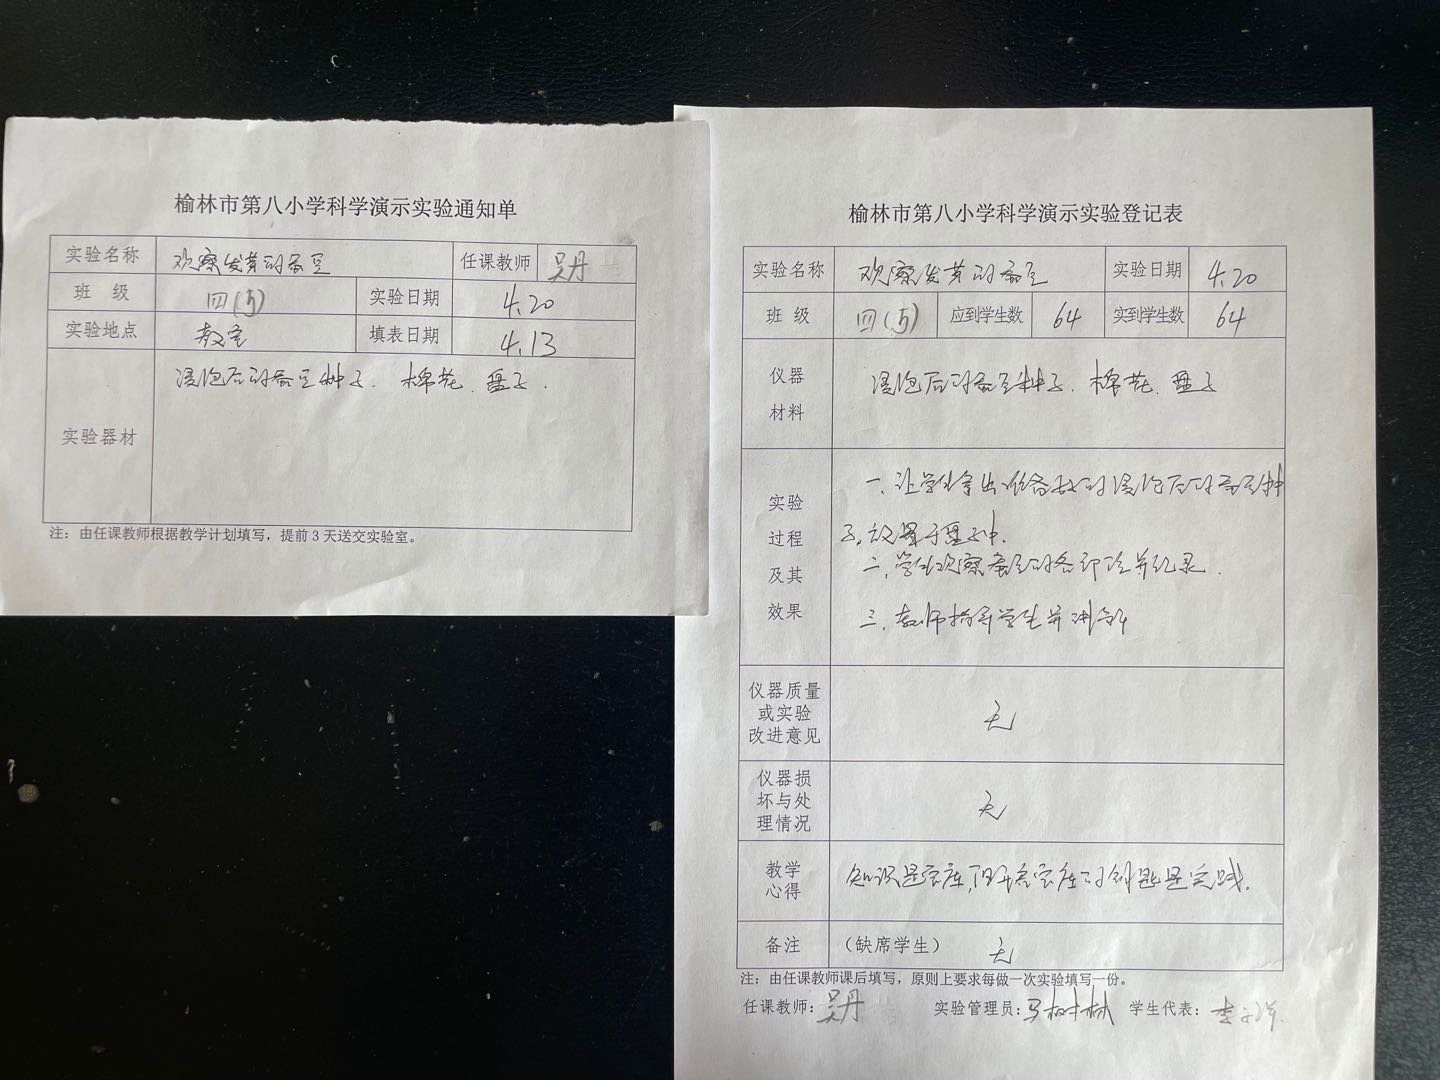 榆林市第八小学科学演示实验通知单
实验名称 观察发芽的蚕豆 任课教师 吴丹
班 级 四(5) 实验日期 4.20
实验地点 教室 填表日期 4.13
实验器材 浸泡后的蚕豆种子. 棉花. 盘子.
注：由任课教师根据教学计划填写，提前3天送交实验室。
榆林市第八小学科学演示实验登记表
实验名称 观察发芽的蚕豆 实验日期 4.20
班 级 四(5) 应到学生数 64 实到学生数 64
仪器
材料
浸泡后的蚕豆种子. 棉花. 盘子
实验
过程
及其
效果
一. 让学生拿出准备好的浸泡后的蚕豆种
子, 放置于盘子中.
二, 学生观察蚕豆的各部位并记录.
三. 教师指导学生并讲解
仪器质量
或实验
改进意见
无
仪器损
坏与处
理情况
无
教学
心得
知识是宝库, 但开启宝库的钥匙是实践.
备注 （缺席学生） 无
注：由任课教师课后填写，原则上要求每做一次实验填写一份。
任课教师：吴丹 实验管理员：马树林 学生代表：李